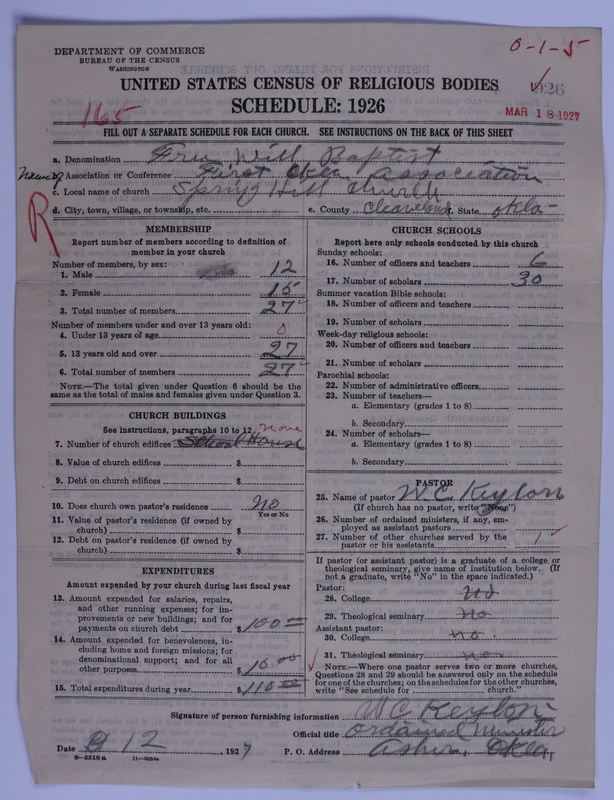 DEPARTMENT OF COMMERCE
BUREAU OF THE CENSUS
WASHINGTON
0-1-5
UNITED STATES CENSUS OF RELIGIOUS BODIES
926
165
SCHEDULE: 1926
MAR 18 1927
FILL OUT A SEPARATE SCHEDULE FOR EACH CHURCH. SEE INSTRUCTIONS ON THE BACK OF THIS SHEET
a. Denomination Free Will Baptist
Name of Association or Conference First Okla Association
c. Local name of church Spring Hill church
d. City, town, village, or township, etc.
e. County Cleaveland State Okla-
R
MEMBERSHIP
Report number of members according to definition of
member in your church
Number of members, by sex:
1. Male 12
2. Female 15
3. Total number of members 27
Number of members under and over 13 years old:
4. Under 13 years of age 0
5. 13 years old and over 27
6. Total number of members 27
NOTE.—The total given under Question 6 should be the
same as the total of males and females given under Question 3.
CHURCH BUILDINGS
See instructions, paragraphs 10 to 12 none
7. Number of church edifices School House
8. Value of church edifices $
9. Debt on church edifices $
10. Does church own pastor's residence No
Yes or No
11. Value of pastor's residence (if owned by
church) $
12. Debt on pastor's residence (if owned by
church) $
EXPENDITURES
Amount expended by your church during last fiscal year
13. Amount expended for salaries, repairs,
and other running expenses; for im-
provements or new buildings; and for
payments on church debt $ 100 00
14. Amount expended for benevolences, in-
cluding home and foreign missions; for
denominational support; and for all
other purposes $ 10.00
15. Total expenditures during year $ 110 00
CHURCH SCHOOLS
Report here only schools conducted by this church
Sunday schools:
16. Number of officers and teachers 6
17. Number of scholars 30
Summer vacation Bible schools:
18. Number of officers and teachers
19. Number of scholars
Week-day religious schools:
20. Number of officers and teachers
21. Number of scholars
Parochial schools:
22. Number of administrative officers
23. Number of teachers—
a. Elementary (grades 1 to 8)
b. Secondary
24. Number of scholars—
a. Elementary (grades 1 to 8)
b. Secondary
PASTOR
25. Name of pastor W C Keylon
(If church has no pastor, write "None")
26. Number of ordained ministers, if any, em-
ployed as assistant pastors
27. Number of other churches served by the
pastor or his assistants 1
If pastor (or assistant pastor) is a graduate of a college or
theological seminary, give name of institution below. (If
not a graduate, write "No" in the space indicated.)
Pastor:
28. College No
29. Theological seminary No
Assistant pastor:
30. College no
31. Theological seminary no
NOTE.—Where one pastor serves two or more churches,
Questions 28 and 29 should be answered only on the schedule
for one of the churches; on the schedules for the other churches,
write "See schedule for church."
Signature of person furnishing information W C Keylon
Official title ordained Minister
Date 12, 1927
P. O. Address Asher, Okla,
8—5518a 11—9054a